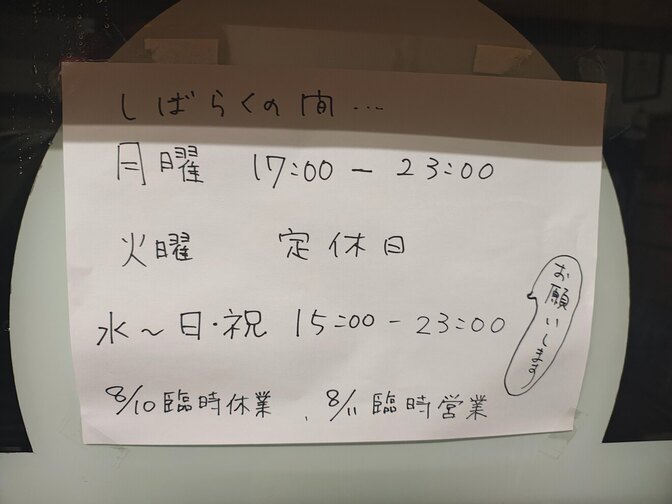 しばらくの間…
月曜 17:00 – 23:00
火曜 定休日
水～日・祝 15:00 – 23:00
お願いします
8/10臨時休業、8/11臨時営業